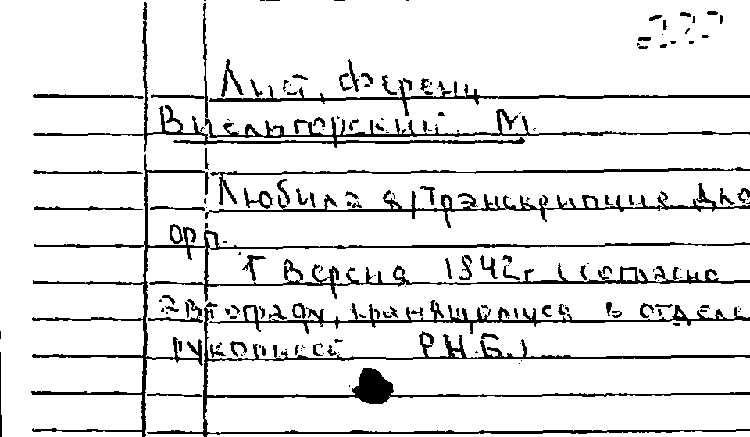 Лист, Ференц
Виельгорский, М.
Любила я / Транскрипция для
орг.
I версия 1842 г. (согласно
автографу, хранящемуся в отделе
рукописей Р.Н.Б.)